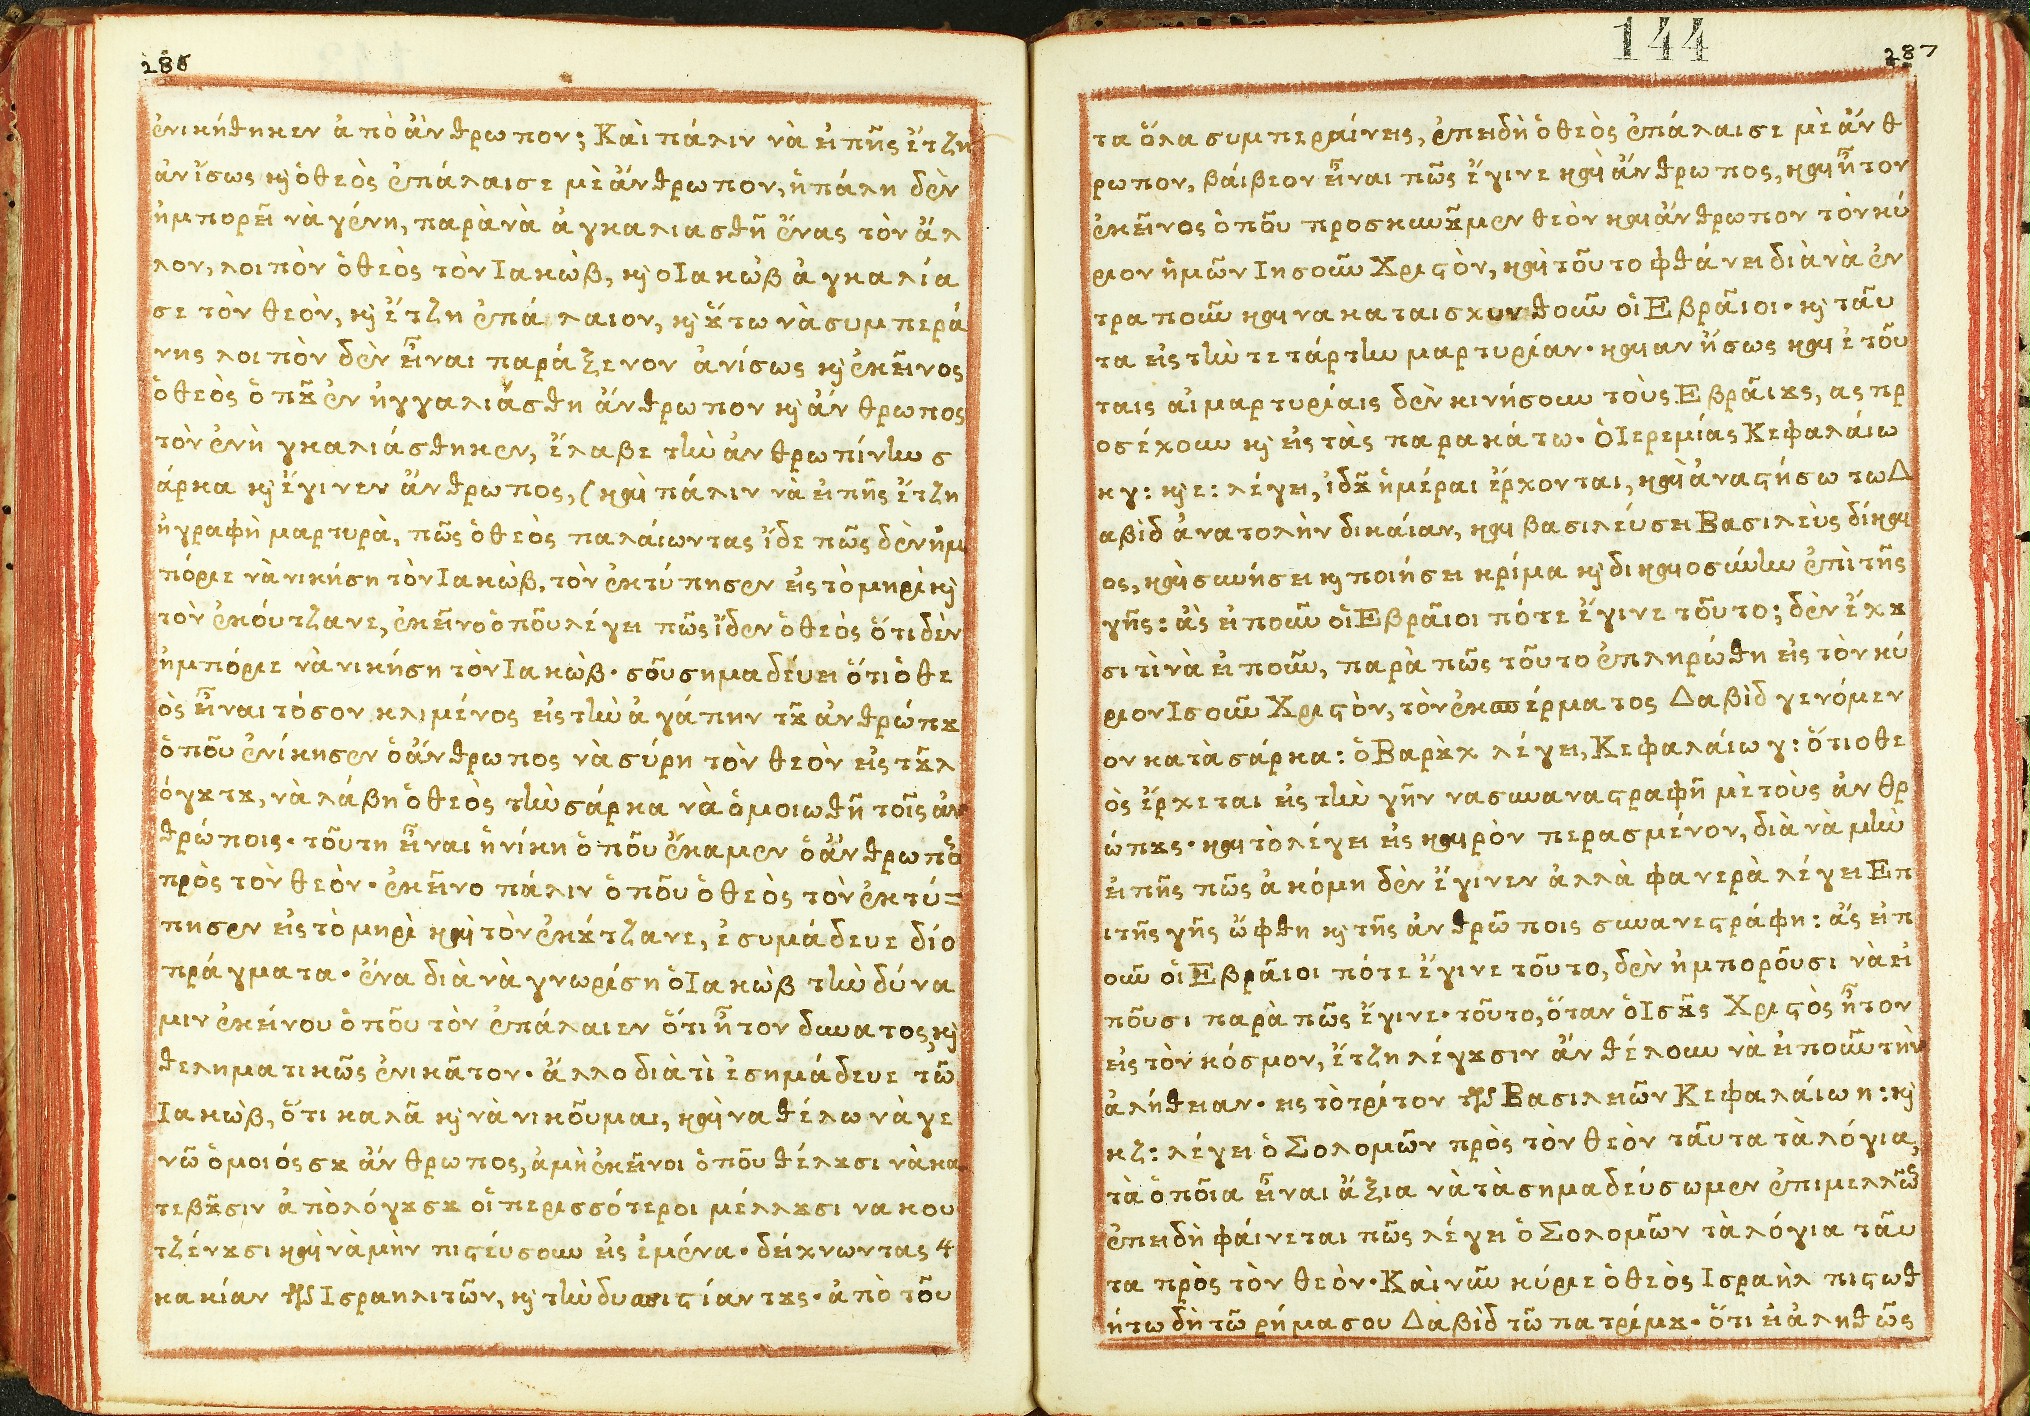 286
ἐνικήθηκεν ἀπὸ ἄνθρωπον; Καὶ πάλιν νὰ εἰπῇς ἔτζη
ἀνἴσως κ̀ ὁ θεὸς ἐπάλαισε μὲ ἄνθρωπον, ἡ πάλη δὲν
ἠμπορεῖ νὰ γένη, παρὰ νὰ ἀγκαλιασθῆ ἕνας τὸν ἄλ
λον, λοιπὸν ὁ θεὸς τὸν Ιακὼβ, κ̀ ο Ιακὼβ ἀγκαλία
σε τὸν θεὸν, κ̀ ἔτζη ἐπάλαιον, κ̀ ὅτω νὰ συμπερά
νης λοιπὸν δὲν εἶναι παράξενον ἀνίσως κ̀ ἐκεῖνος
ὁ θεὸς ὁποῦ ἐνηγγαλιάσθη ἄνθρωπον κ̀ ἄνθρωπος
τὸν ἐνὴγκαλιάσθηκεν, ἔλαβε τὴν ἀνθρωπίνην σ
άρκα κ̀ ἔγινεν ἄνθρωπος, (καὶ πάλιν νὰ εἰπῇς ἔτζη
ἡ γραφὴ μαρτυρὰ, πῶς ὁ θεὸς παλάιωντας ἴδε πῶς δὲν ἠμ
πόριε νὰ νικήση τὸν Ιακὼβ, τὸν ἐκτύπησεν εἰς τὸ μηρὶ κ̀
τὸν ἐκούτζανε, ἐκεῖνο ὁποῦ λέγει πῶς ἴδεν ὁ θεὸς ὅτι δὲν
ἠμπόριε νὰ νικήση τὸν Ιακὼβ · σοῦ σημαδέυει ὅτι ὁ θε
ὸς εἶναι τόσον κλιμένος εἰς τὴν ἀγάπην τοῦ ἀνθρώπου
ὁποῦ ἐνίκησεν ὁ ἄνθρωπος νὰ σύρη τὸν θεὸν εἰς τοῦ λ
όγου του, νὰ λάβη ὁ θεὸς τὴν σάρκα νὰ ὁμοιωθῆ τοῖς ἀν
θρώποις · τοῦτη εἶναι ἡ νίκη ὁποῦ ἔκαμεν ὁ ἄνθρωπος
πρὸς τὸν θεὸν · ἐκεῖνο πάλιν ὁποῦ ὁ θεὸς τὸν ἐκτύ=
πησεν εἰς τὸ μηρὶ καὶ τὸν ἐκούτζανε, ἐσυμάδευε δίο
πράγματα · ἕνα διὰ νὰ γνωρίση ὁ Ιακὼβ τὴν δύνα
μιν ἐκείνου ὁποῦ τὸν ἐπάλαιεν ὅτι ἦτον δυνατος, κ̀
θεληματικῶς ἐνικᾶτον · ἄλλο διὰ τὶ ἐσημάδευε τῶ
Ιακὼβ, ὅτι καλᾶ κ̀ νὰ νικοῦμαι, καὶ να θέλω νὰ γε
νῶ ὁμοιός σου ἄνθρωπος, ἀμὴ ἐκεῖνοι ὁποῦ θέλουσι νὰ κα
τεβοῦσιν ἀπὸ λόγου σου οἱ περισσότεροι μέλλουσι να κου
τζένουσι καὶ νὰ μὴν πιστέυσουν εἰς ἐμένα · δείχνωντας τ
κακίαν τῶν Ισραηλιτῶν, κ̀ τὴν δυσπιστίαν τους · ἀπὸ τοῦ
144
287
τα ὅλα συμπεράινεις, ἐπειδὴ ὁ θεὸς ἐπάλαισε μὲ ἄνθ
ρωπον, βάιβεον εἶναι πῶς ἔγινε καὶ ἄνθρωπος, καὶ ἦτον
ἐκεῖνος ὁποῦ προσκυνοῦμεν θεὸν καὶ ἄνθρωπον τὸν κύ
ριον ἡμῶν Ιησοῦν Χριστὸν, καὶ τοῦτο φθάνει διὰ νὰ ἐν
τραποῦν καὶ να καταισχυνθοῦν οἱ Εβρᾶιοι · κ̀ τᾶυ
τα εἰς τὴν τετάρτην μαρτυρίαν · καὶ αν ἤσως καὶ ἐτοῦ
ταις αἱ μαρτυρίαις δὲν κινήσουν τοὺς Εβρᾶιους, ας πρ
οσέχουν κ̀ εἰς τὰς παρακάτω · ὁ Ιερεμίας Κεφαλάιω
κγ: κ̀ ε: λέγει, ἰδοῦ ἡμέραι ἔρχονται, καὶ ἀναστήσω τω Δ
αβὶδ ἀνατολὴν δικάιαν, καὶ βασιλέυσει Βασιλεὺς δίκαι
ος, καὶ συνήσει κ̀ ποιήσει κρίμα κ̀ δικαιοσύνην ἐπὶ τῆς
γῆς: ἂς εἰποῦν οἱ Εβρᾶιοι πότε ἔγινε τοῦτο; δὲν ἔχου
σι τὶ νὰ εἰποῦν, παρὰ πῶς τοῦτο ἐπληρώθη εἰς τὸν κύ
ριον Ισοῦν Χριστὸν, τὸν ἐκ σπέρματος Δαβὶδ γενόμεν
ον κατὰ σάρκα: ὁ Βαροὺχ λέγει, Κεφαλάιω γ: ὅτι ο θε
ὸς ἔρχεται εἰς τὴν γῆν να συναναστραφῆ μὲ τοὺς ἀνθρ
ώπους · καὶ τὸ λέγει εἰς καιρὸν περασμένον, διὰ νὰ μὴν
εἰπῆς πῶς ἀκόμη δὲν ἔγινεν ἀλλὰ φανερὰ λέγει Επ
ι τῆς γῆς ὤφθη κ̀ τῆς ἀνθρῶποις συνανεστράφη: ἂς εἰπ
οῦν οἱ Εβρᾶιοι πότε ἔγινε τοῦτο, δὲν ἠμποροῦσι νὰ εἰ
ποῦσι παρὰ πῶς ἔγινε · τοῦτο, ὅταν ὁ Ισοῦς Χριστὸς ἦτον
εἰς τὸν κόσμον, ἔτζη λέγουσιν ἂν θέλουν νὰ εἰποῦν τὴν
ἀλήθειαν · εις τὸ τρίτον τῶν Βασιλειῶν Κεφαλάιω η: κ̀
κζ: λέγει ὁ Σολομῶν πρὸς τὸν θεὸν τᾶυτα τὰ λόγια,
τὰ ὁποῖα εἶναι ἄξια νὰ τὰ σημαδέυσωμεν ἐπιμελλῶς
ἐπειδὴ φάινεται πῶς λέγει ὁ Σολομῶν τὰ λόγια τᾶυ
τα πρὸς τὸν θεὸν · Καὶ νῦν κύριε ὁ θεὸς Ισραὴλ πιστωθ
ήτω δὴ τῶ ρήμα σου Δὰβὶδ τῶ πατρί μου · ὅτι εἰ ἀληθῶς